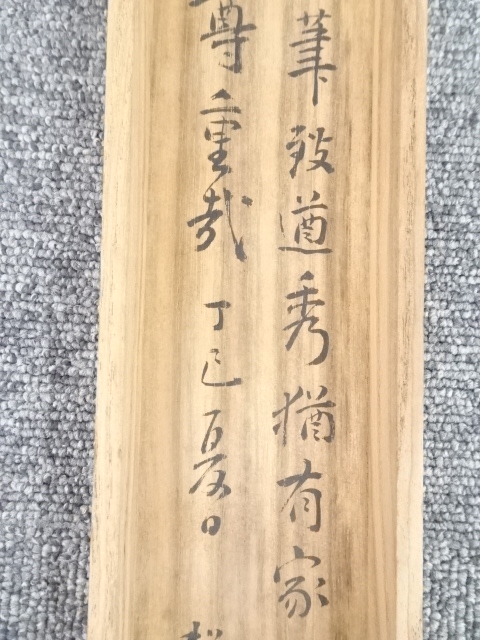 筆致遒秀猶有家
尊重哉 丁巳夏日